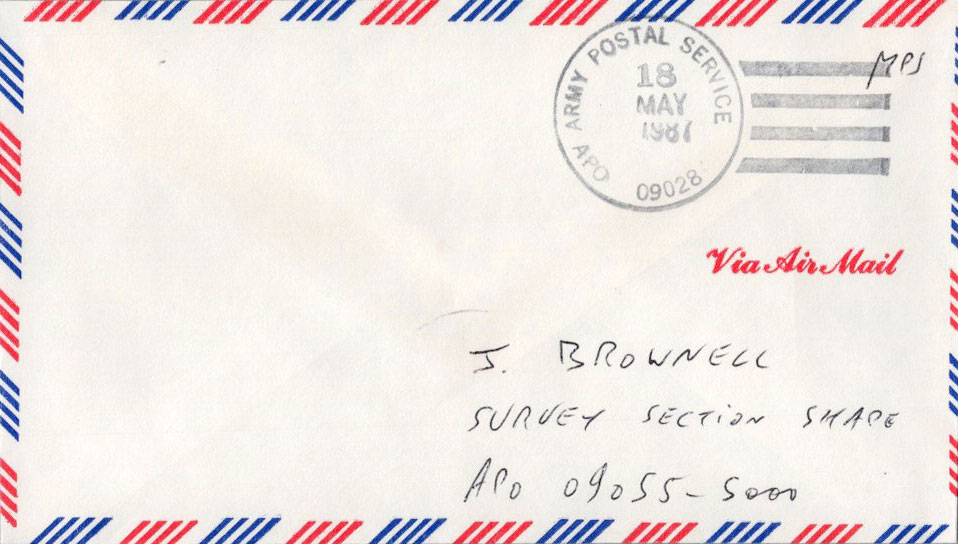 ARMY POSTAL SERVICE
18
MAY
1987
APO 09028
MPS
Via Air Mail
J. BROWNELL
SURVEY SECTION SHAPE
APO 09055-5000